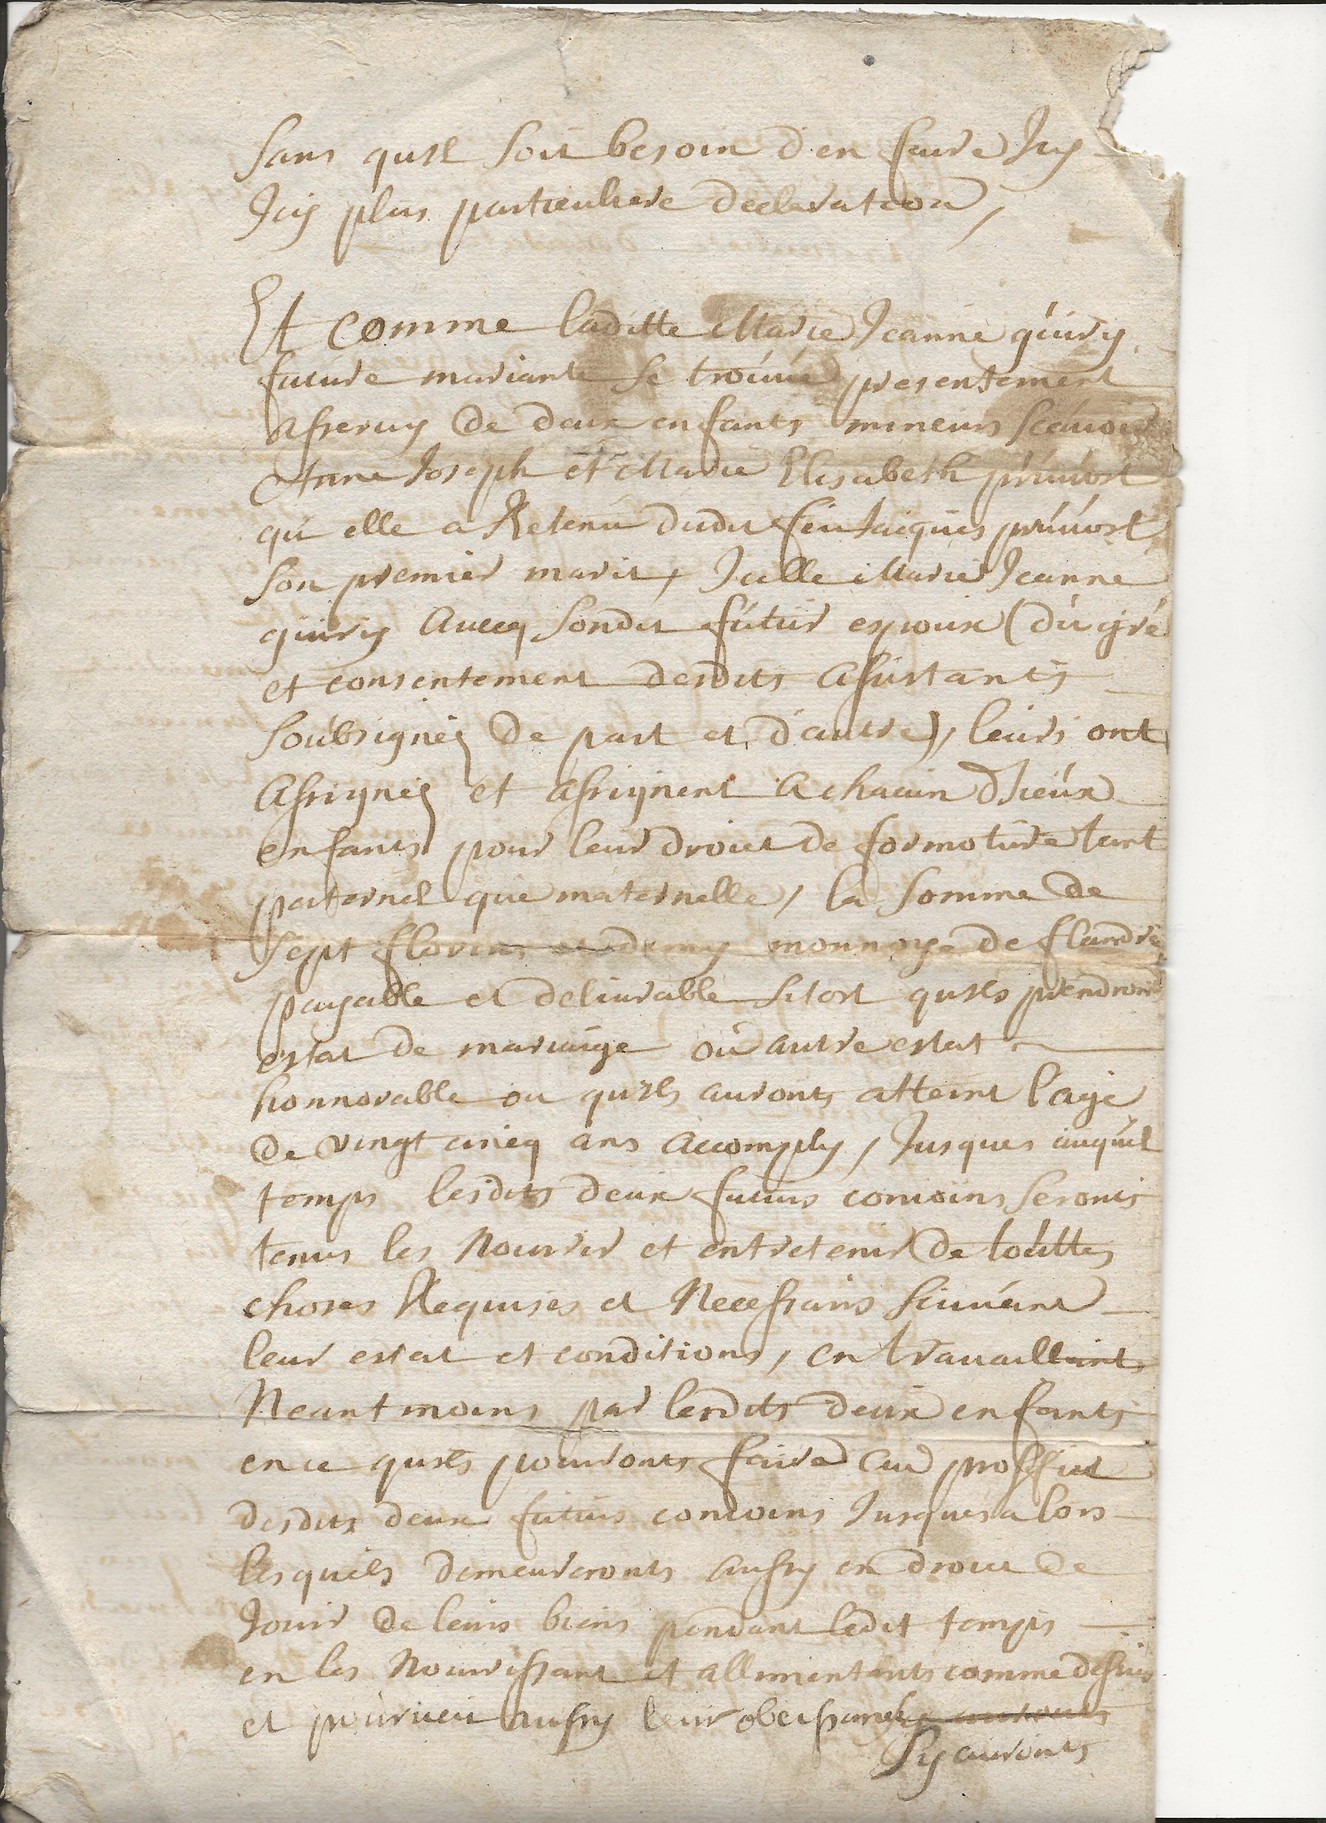 Sans qu'il soit besoin d'en faire Icy
Icy plus particuliere declaration,
Et comme laditte Marie Jeanne quiry
future mariante se trouve presentement
asservy de deux enfants mineurs scavoir
Anne Joseph et Marie Elisabeth pruvost
qu elle a Retenu dudit feu Jacques pruvost
son premier marit, Icelle Marie Jeanne
quiry avecq sondit futur espoux (du gré
et consentement desdits assistants
soubsignéz de part et d'autre), leurs ont
assignéz et assignent a chacun d'iceux
enfants pour leur droict de formoture tant
paternel que maternelle, la somme de
sept florins et demy monnoye de flandre
payable et delivrable sitost qu'ils prendront
estat de mariage ou autre estat
honnorable ou qu'ils auronts atteint l'age
de vingt cincq ans accomply, Jusques auquel
temps lesdits deux futurs conioins seronts
tenus les Nourir et entretenir de touttes
choses Requises et Necessairs suivant
leur estat et conditions, en travaillants
Neantmoins par lesdits deux enfants
en ce qu'ils pouronts faire au proffict
desdits deux futurs conioins Jusques alors
lesquels demeureronts aussy en droict de
Jouir de leurs biens pendant ledit temps
en les Nourissant et allimentants comme dessus
et pourveu aussy leur obeissance
sy auronts